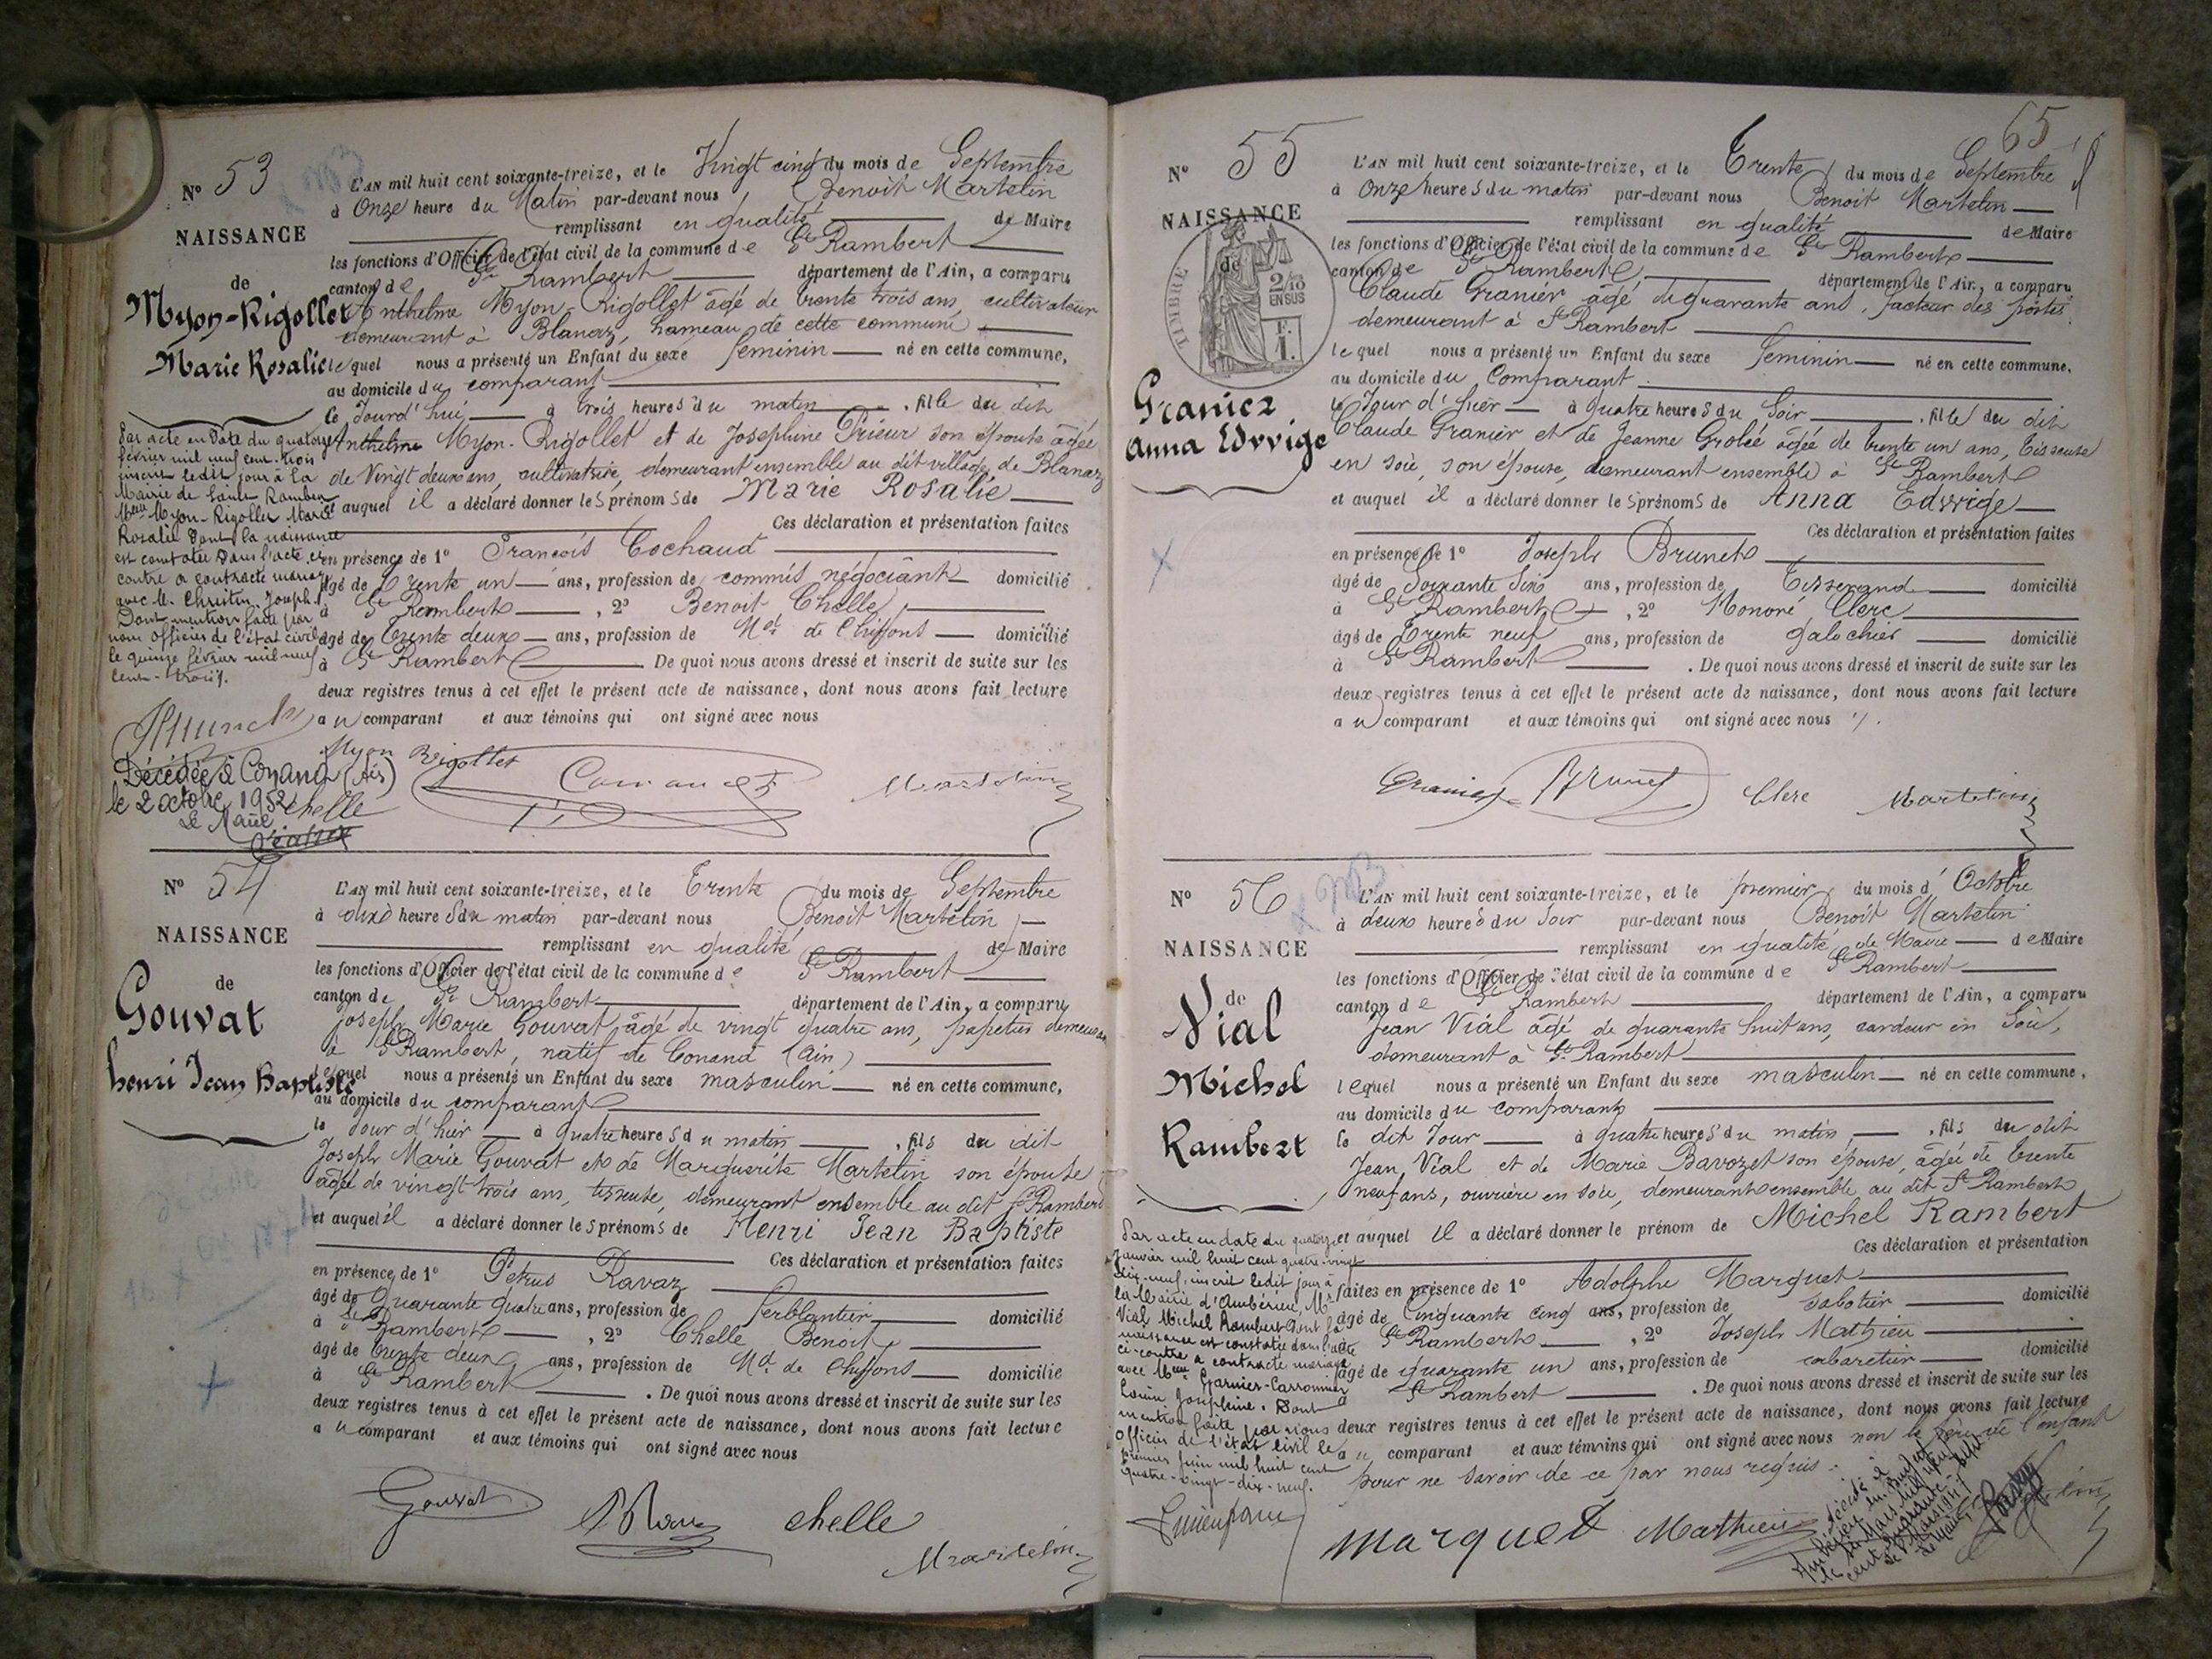 N° 53
NAISSANCE
de
Myon-Rigollet
Marie Rosalie
L'AN mil huit cent soixante-treize, et le Vingt cinq du mois de Septembre
à Onze heure du Matin par-devant nous Benoit Martelin
remplissant en qualité de Maire
les fonctions d'Officier de l'état civil de la commune de St Rambert
canton de St Rambert département de l'Ain, a comparu
Anthelme Myon-Rigollet âgé de trente trois ans, cultivateur
demeurant à Blanaz, hameau de cette commune
lequel nous a présenté un Enfant du sexe féminin né en cette commune,
au domicile du comparant
le Jourd'hui à trois heures du matin, fille du dit
Anthelme Myon-Rigollet et de Josephine Prieur son épouse âgée
de Vingt deux ans, cultivatrice, demeurant ensemble au dit village de Blanaz
et auquel il a déclaré donner les prénoms de Marie Rosalie
Ces déclaration et présentation faites
en présence de 1° François Cochaud
âgé de trente un ans, profession de commis négociant domicilié
à St Rambert, 2° Benoit Chelle
âgé de trente deux ans, profession de Md de Chiffons domicilié
à St Rambert De quoi nous avons dressé et inscrit de suite sur les
deux registres tenus à cet effet le présent acte de naissance, dont nous avons fait lecture
au comparant et aux témoins qui ont signé avec nous
Par acte en date du quatorze
février mil neuf cent trois
inscrit ledit jour à la
Mairie de Saint Rambert
Melle Myon-Rigollet Marie
Rosalie dont la naissance
est constatée dans l'acte ci-
contre a contracté mariage
avec M. Chrestin Joseph
Dont mention faite par
nous officier de l'état civil
le quinze février mil neuf
cent-trois.
Myon Rigollet
Martelin
Décédée à Conand (Ain)
le 2 octobre 1952
Chelle
Le Maire
N° 54
NAISSANCE
de
Gouvat
henri Jean Baptiste
L'AN mil huit cent soixante-treize, et le Trente du mois de Septembre
à dix heures du matin par-devant nous Benoit Martelin
remplissant en qualité de Maire
les fonctions d'Officier de l'état civil de la commune de St Rambert
canton de St Rambert département de l'Ain, a comparu
Joseph Marie Gouvat, âgé de vingt quatre ans, papetier demeurant
à St Rambert, natif de Conand (Ain)
lequel nous a présenté un Enfant du sexe masculin né en cette commune,
au domicile du comparant
le Jour d'hier à quatre heures du matin, fils du dit
Joseph Marie Gouvat et de Marguerite Martelin son épouse
âgée de vingt trois ans, tisseuse, demeurant ensemble au dit St Rambert
et auquel il a déclaré donner les prénoms de Henri Jean Baptiste
Ces déclaration et présentation faites
en présence de 1° Petrus Ravaz
âgé de quarante quatre ans, profession de ferblantier domicilié
à St Rambert, 2° Chelle Benoit
âgé de trente deux ans, profession de Md de Chiffons domicilié
à St Rambert. De quoi nous avons dressé et inscrit de suite sur les
deux registres tenus à cet effet le présent acte de naissance, dont nous avons fait lecture
au comparant et aux témoins qui ont signé avec nous
Gouvat
Chelle
Martelin
65
N° 55
NAISSANCE
de
TIMBRE
2/10
EN SUS
Granier
Anna Edvvige
L'AN mil huit cent soixante-treize, et le Trente du mois de Septembre
à Onze heures du matin par-devant nous Benoit Martelin
remplissant en qualité de Maire
les fonctions d'Officier de l'état civil de la commune de St Rambert
canton de St Rambert département de l'Ain, a comparu
Claude Granier âgé de quarante ans, facteur des postes
demeurant à St Rambert
lequel nous a présenté un Enfant du sexe féminin né en cette commune,
au domicile du Comparant
le Jour d'hier à quatre heures du Soir, fille du dit
Claude Granier et de Jeanne Grolée âgée de trente un ans, tisseuse
en soie, son épouse, demeurant ensemble à St Rambert
et auquel il a déclaré donner les prénoms de Anna Edvvige
Ces déclaration et présentation faites
en présence de 1° Joseph Brunet
âgé de soixante six ans, profession de Tisserand domicilié
à St Rambert, 2° Honoré Clerc
âgé de trente neuf ans, profession de galochier domicilié
à St Rambert. De quoi nous avons dressé et inscrit de suite sur les
deux registres tenus à cet effet le présent acte de naissance, dont nous avons fait lecture
au comparant et aux témoins qui ont signé avec nous
Granier Brunet Clerc Martelin
N° 56
NAISSANCE
de
Vial
Michel
Rambert
L'AN mil huit cent soixante-treize, et le premier du mois d'Octobre
à deux heures du Soir par-devant nous Benoit Martelin
remplissant en qualité de Maire de Maire
les fonctions d'Officier de l'état civil de la commune de St Rambert
canton de St Rambert département de l'Ain, a comparu
Jean Vial âgé de quarante huit ans, cardeur en Soie,
demeurant à St Rambert
lequel nous a présenté un Enfant du sexe masculin né en cette commune,
au domicile du comparant
le dit Jour à quatre heures du matin, fils du dit
Jean Vial et de Marie Bavozet son épouse, âgée de trente
neuf ans, ouvrière en soie, demeurant ensemble au dit St Rambert
et auquel il a déclaré donner le prénom de Michel Rambert
Ces déclaration et présentation
faites en présence de 1° Adolphe Marquet
âgé de Cinquante cinq ans, profession de sabotier domicilié
à St Rambert, 2° Joseph Mathieu
âgé de quarante un ans, profession de cabaretier domicilié
à St Rambert. De quoi nous avons dressé et inscrit de suite sur les
deux registres tenus à cet effet le présent acte de naissance, dont nous avons fait lecture
au comparant et aux témoins qui ont signé avec nous non le père de l'enfant
pour ne savoir de ce par nous requis.
Par acte en date du quatorze
Janvier mil huit cent quatre-vingt
dix-neuf, inscrit ledit jour à
la Mairie d'Ambérieu, Mr
Vial Michel Rambert dont la
naissance est constatée dans l'acte
ci-contre a contracté mariage
avec Melle Garnier-Carronnier
Louise Joséphine. Dont
mention faite par nous
Officier de l'état civil le
premier Juin mil huit cent
quatre-vingt-dix-neuf.
Marquet Mathieu
Décédé à
Ambérieu en Bugey